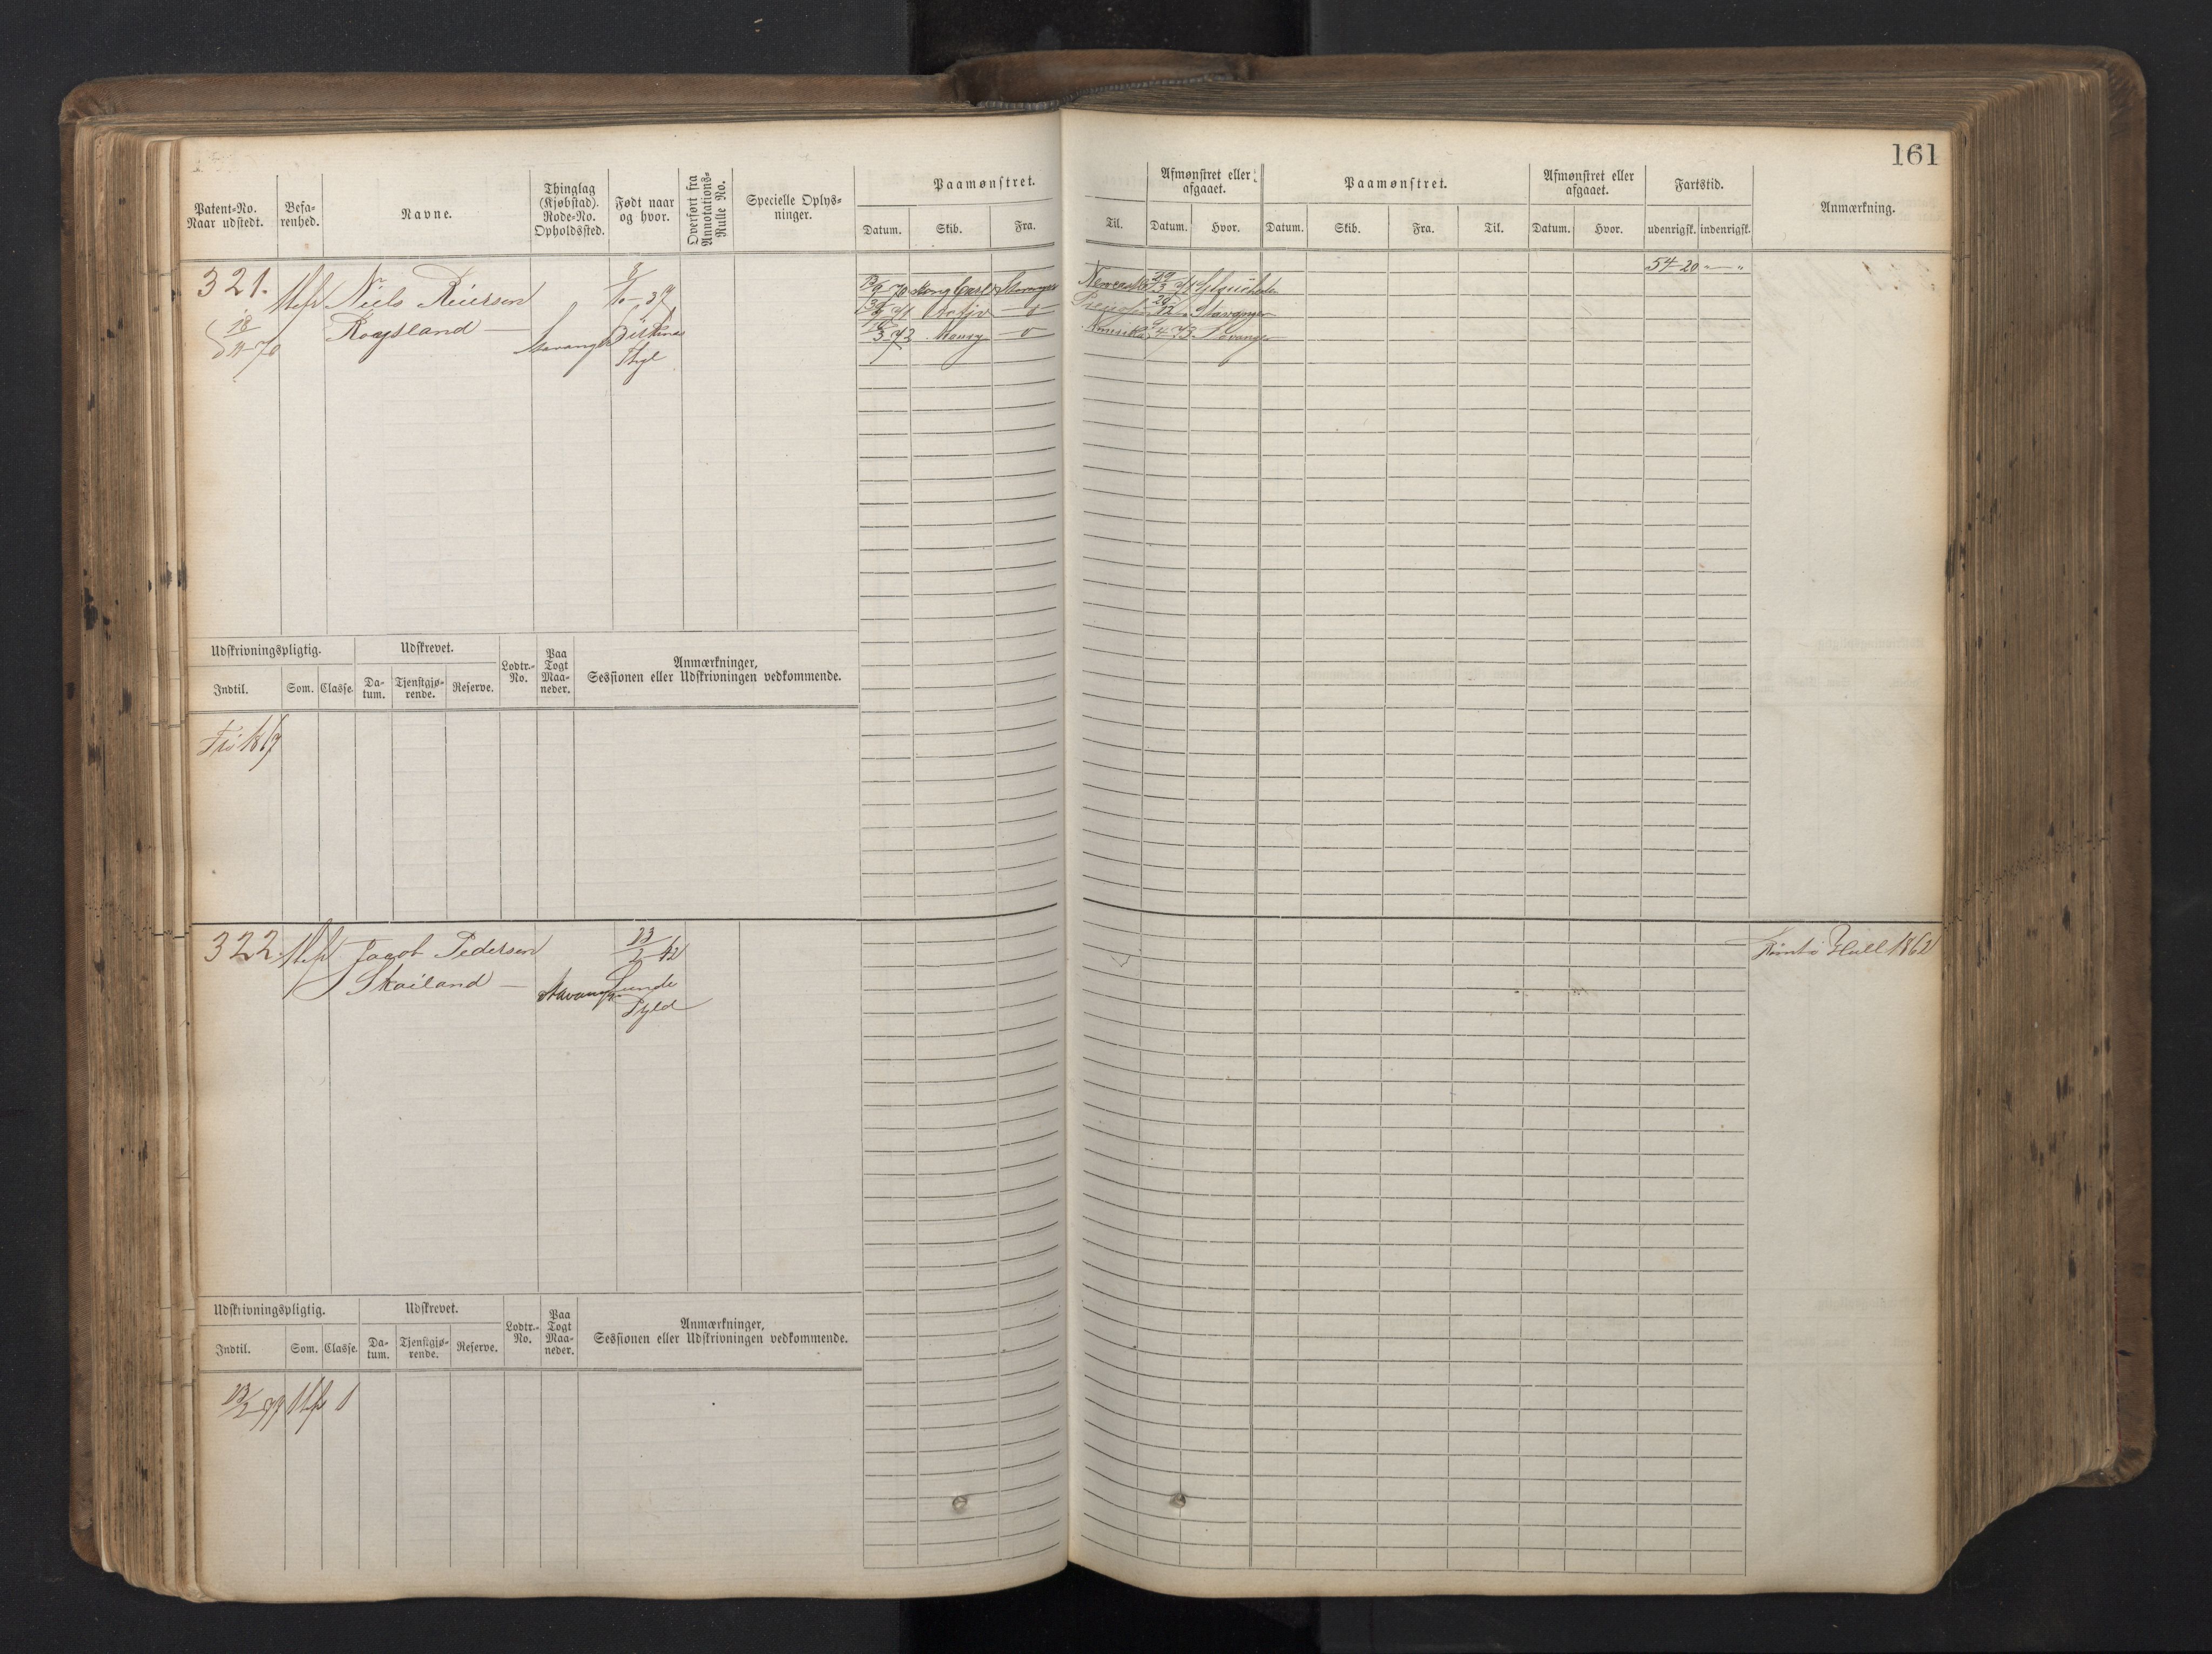 161
Patent-No.
Naar udstedt.
Befa-
renhed.
Navne.
Thinglag
(Kjøbstad).
Rode-No.
Opholdssted.
Født naar
og hvor.
Overført fra
Annotations-
Rulle No.
Specielle Oplys-
ninger.
Paamønstret.
Datum. Skib. Fra.
Til.
Afmønstret eller
afgaaet.
Datum. Hvor.
Paamønstret.
Datum. Skib. Fra. Til.
Afmønstret eller
afgaaet.
Datum. Hvor.
Fartstid.
udenrigsk. indenrigsk.
Anmærkning.
321.
18/11-70
Niels Reiersen
Rogsland
Stavanger
8/10-39
Birkenes
13/9 70 Kong Carl Stavanger
Activ
3-72 Henry
29/3 71
12 Stavanger
Amerika 4 73 Stavanger
54-20
Udskrivningspligtig.
Indtil. Som. Classe.
Udskrevet.
Da-
tum.
Tjenstgjø-
rende.
Reserve.
Lodtr.-
No.
Paa
Togt
Maa-
neder.
Anmærkninger,
Sessionen eller Udskrivningen vedkommende.
Fri 1869
322.
Jacob Pedersen
Skailand
Stavanger
23/2-42
Lunde
Rømte Hull 1862
Udskrivningspligtig.
Indtil. Som. Classe.
Udskrevet.
Da-
tum.
Tjenstgjø-
rende.
Reserve.
Lodtr.-
No.
Paa
Togt
Maa-
neder.
Anmærkninger,
Sessionen eller Udskrivningen vedkommende.